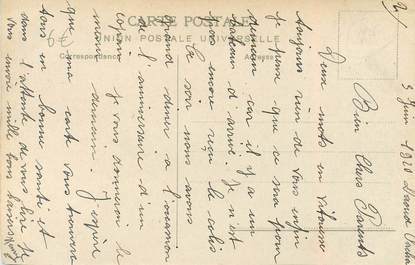 CARTE POSTALE
UNION POSTALE UNIVERSELLE
Correspondance
Adresse
2/
3 Juin 1920
Bien Chers Parents
Deux mots en vitesse
toujours rien de vous enfin
je pense que ce sera pour
demain car il y a un
bateau d'arrivé. Je n'ai
pas encore reçu le colis
Ce soir nous avons
grand diner à l'occasion
de l'anniversaire d'un
copain je vous donnerai le
menu demain. J'espère
que ma carte vous trouvera
tous en bonne santé et
dans l'attente de vous lire je
vous envoie mille bons baisers